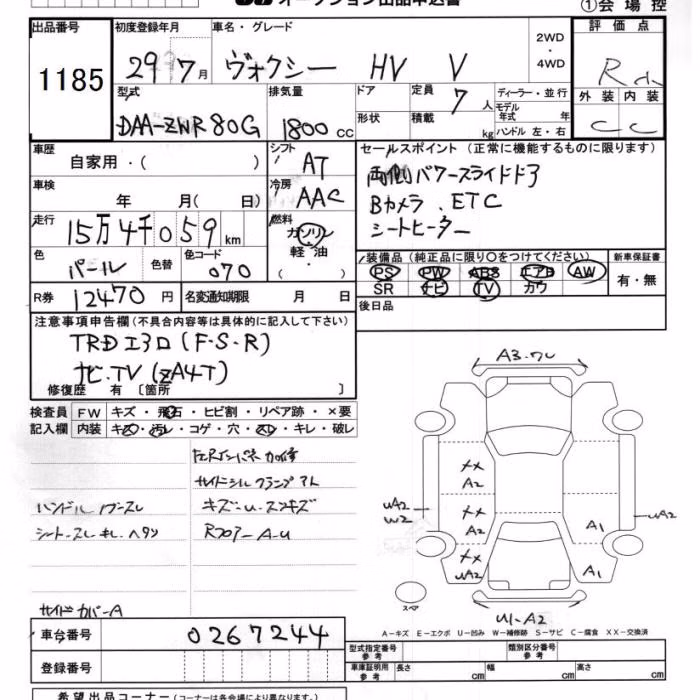 オークション出品申込書
①会場控
出品番号 初度登録年月 車名・グレード 2WD・4WD 評価点
1185 29 7月 ヴォクシー HV V R
型式 排気量 ドア 定員 ディーラー・並行 外装 内装
DAA-ZWR80G 1800cc 7人 モデル年式 年
形状 積載 kg ハンドル 左・右 C C
車歴 シフト セールスポイント (正常に機能するものに限ります)
自家用・( ) AT 両側パワースライドドア
車検 冷房 Bカメラ、ETC
年 月( 日) AAC シートヒーター
走行 燃料
15万4千059km ガソリン 軽油・
色 色替 色コード 装備品 (純正品に限り○をつけてください) 新車保証書
パール 070 PS PW ABS エアB AW 有・無
R券 12470円 名変通知期限 月 日 SR ナビ TV カワ
後日品
注意事項申告欄 (不具合内容等は具体的に記入して下さい)
TRDエアロ(F・S・R)
ナビ、TV(ZA4T)
修復歴 有 〔箇所 〕
検査員 FW キズ・飛石・ヒビ割・リペア跡・×要
記入欄 内装 キズ・汚レ・コゲ・穴・スレ・キレ・破レ
サイドシルクランプアト
ハンドル キズ・U・スリキズ
シートスレ・キレ・ヘタリ Rフロアー A-U
サイドカバーA
A3.ワレ
XX
A2
XX
A2
UA2
W2
A1
UA2
XX
UA2
A1
スペア
U1-A2
A-キズ E-エクボ U-凹み W-補修跡 S-サビ C-腐食 XX-交換済
車台番号 0267244
登録番号
型式指定番号 参考 類別区分番号 参考
車庫証明用 参考 長さ cm 幅 cm 高さ cm
希望出品コーナー (コーナーは各会場により異なります。)